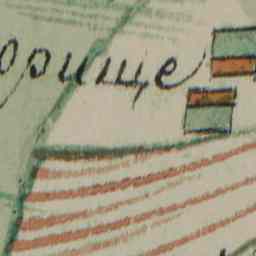 орище